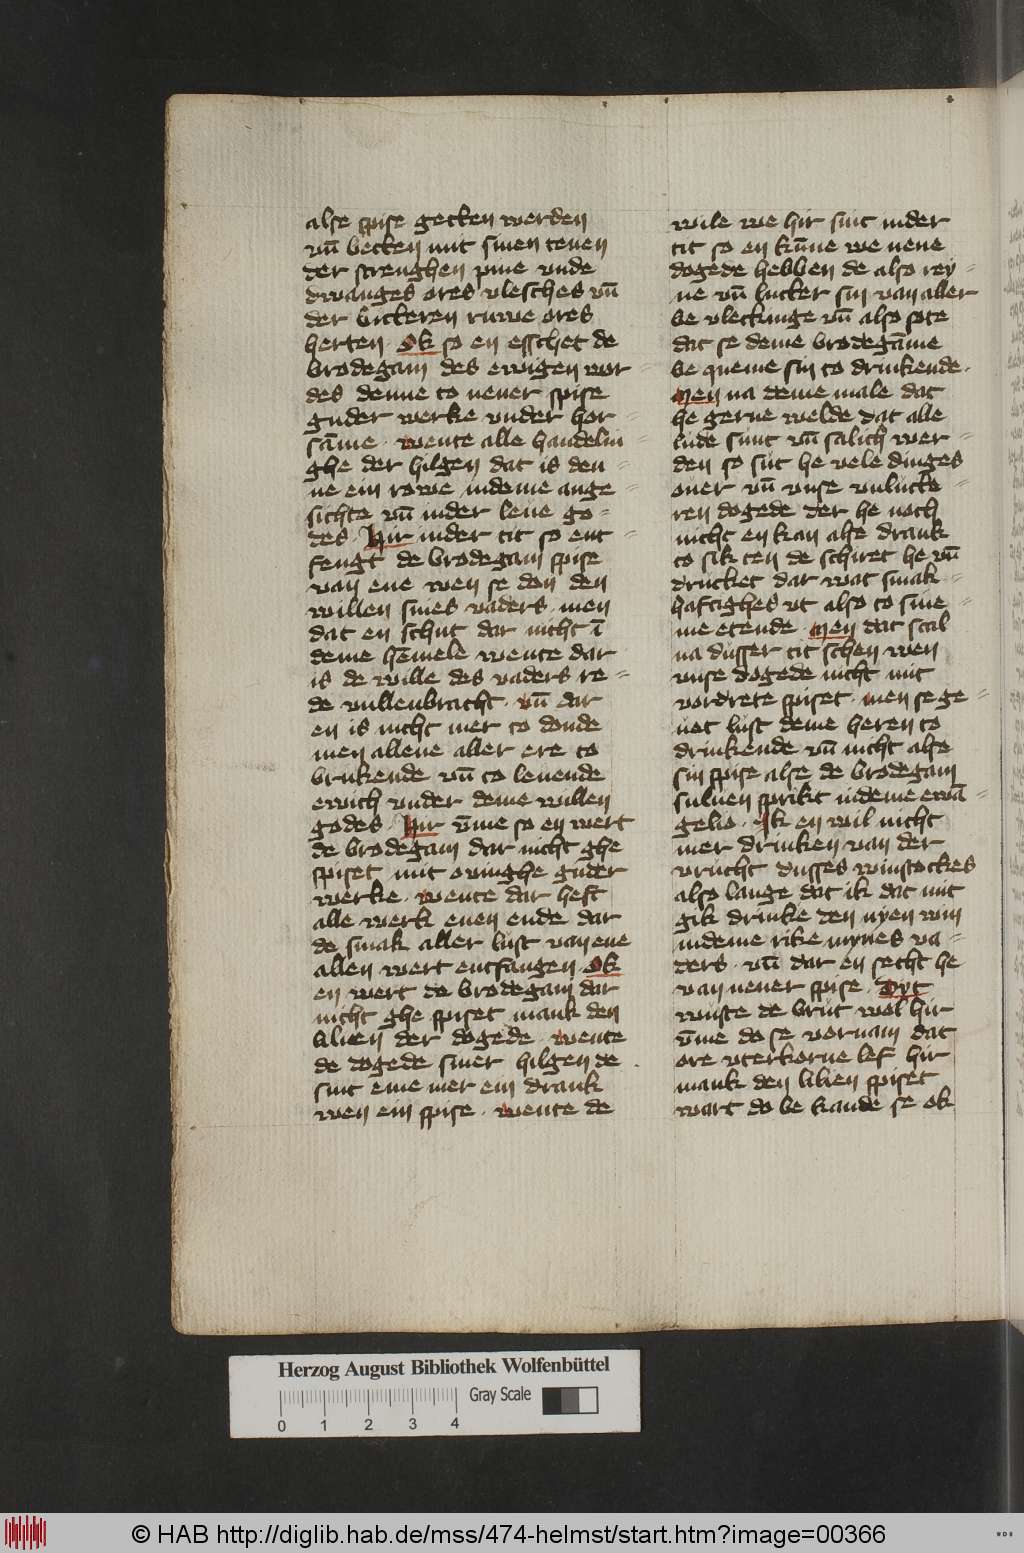 alse spise gecken werden
vn̄ becken mit sinen tenen
der strenghen pine vnde
dwanges ores vlesches vn̄
der bitteren ruwe ores
herten · Ok so en esschet de
brodegam des ewigen wor
des denne to nener spise
guder werke vnder hor-
sām̄e · wente alle handelin=
ghe der hilgen dat is den=
ne ein rowe indeme ange=
sichte vn̄ inder leue go=
des · Hir inder tit so ent=
fengt de brodegam spise
van ene wen se don den
willen sines vaders · men
dat en schut dar nicht ī
deme hēmele wente dar
is de wille des vaders re=
de vullenbracht · vn̄ dar
en is nicht mer to donde
men allene aller ere to
brukende vn̄ to leuende
ewich vnder deme willen
godes · Hir v̄me so en wert
de brodegam dar nicht ghe
spiset mit ouinghe guder
werke · wente dar heft
alle werk enen ende dar
de smak aller lust van ene
allen wert entfangen Ok
en wert de brodegam dar
nicht ghe spiset mank den
lilien der dogede · wente
de dogede siner hilgen de
sint eme mer ein drank
wen ein spise · wente de
wile we hir sint inder
tit so en kūne we nene
dogede hebben de also rey=
ne vn̄ lutter sin van aller
be vleckinge vn̄ also sote
dat se deme brodegāme
be queme sin to drinkende ·
Men na deme male dat
he gerne welde dat alle
lude sunt vn̄ salich wer=
den so sut he vele dinges
ouer vn̄ vnse vnlutte=
ren dogede der he noch
nicht en kan alse drank
to sik ten de schiret he vn̄
drucket dar wat smak=
haftighes vt also to sine=
me etende · Men dat scal
na dusser tit schen wen
vnse dogede nicht mit
vordrete spiset · men se ge=
uet lust deme heren to
drinkende vn̄ nicht also
sin spise alse de brodegam
suluen sprikt indeme ewā=
gelio · Ik en wil nicht
mer drinken van der
vrucht dusses winstockes
also lange dat ik dat mit
gik drinke den nyen win
indeme rike mynes va=
ders · vn̄ dar en secht he
van nener spise · Dyt
wuste de brut wol hir
v̄me do se vornam dat
ore vterkorne lef hir
mank den lilien spiset
wart do be kande se ok
Herzog August Bibliothek Wolfenbüttel
0 1 2 3 4
Gray Scale
© HAB http://diglib.hab.de/mss/474-helmst/start.htm?image=00366
WDB